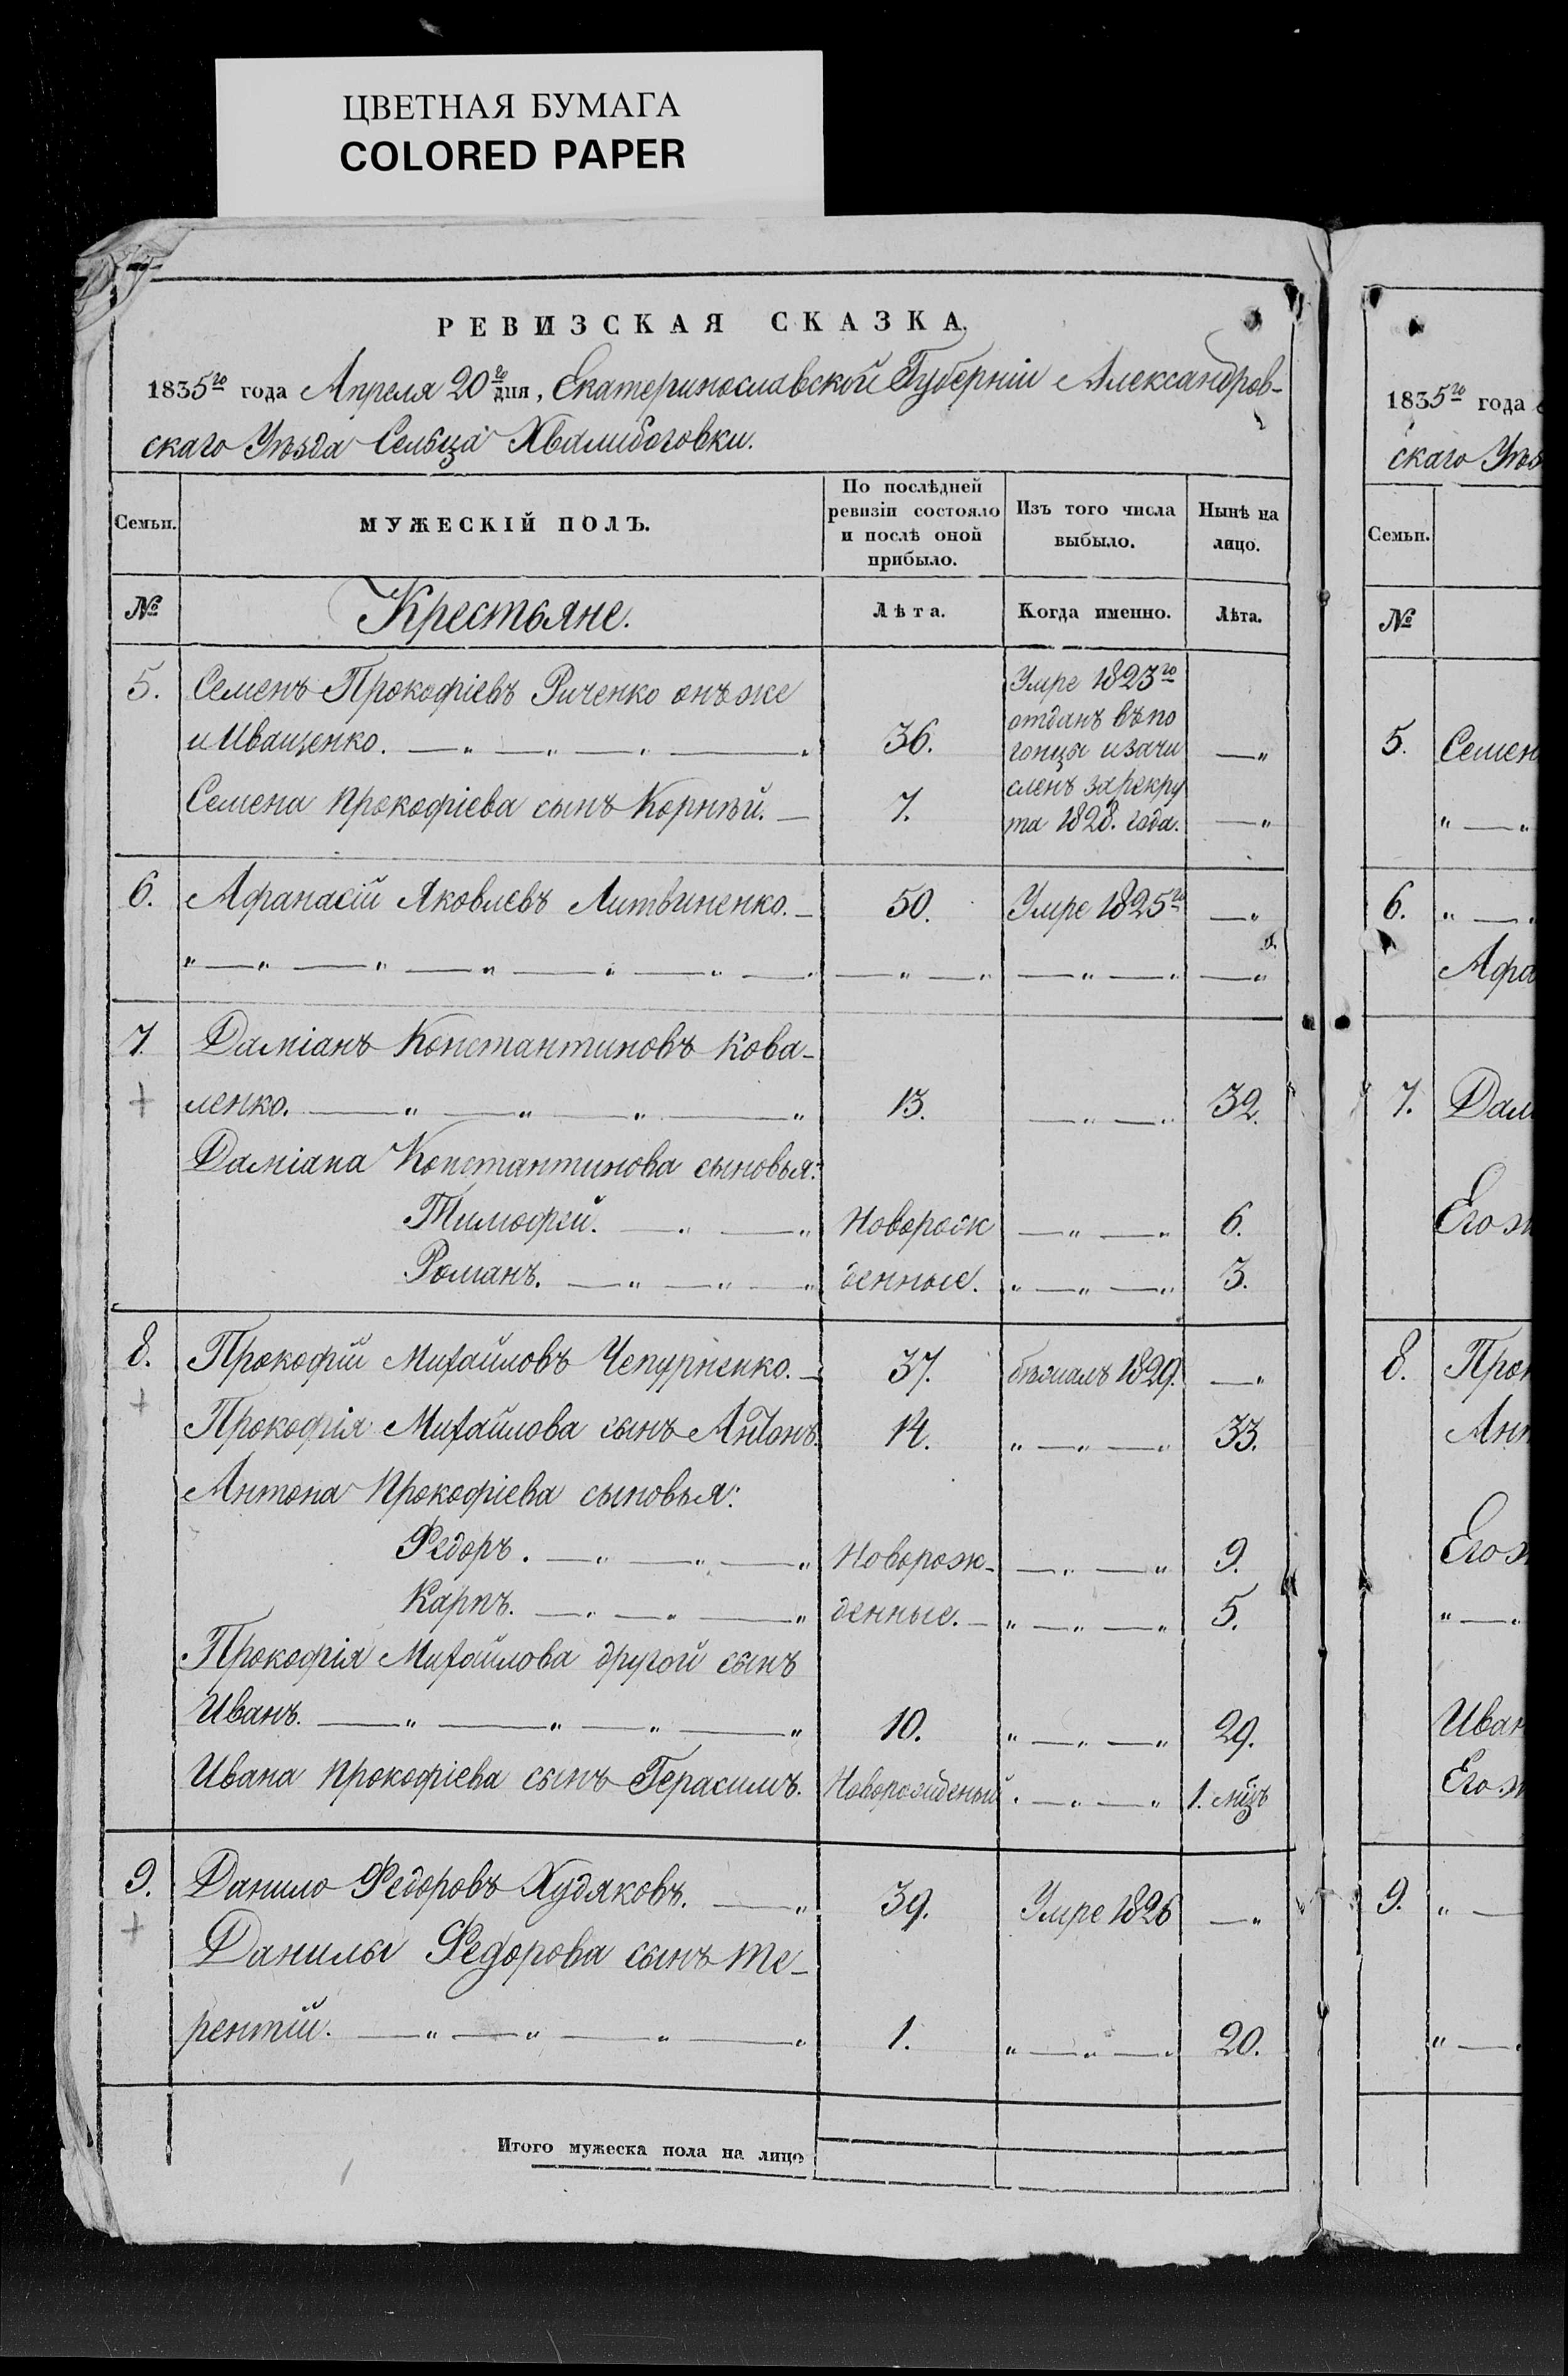 ЦВЕТНАЯ БУМАГА
COLORED PAPER
РЕВИЗСКАЯ СКАЗКА.
1835го года Апреля 20го дня, Екатеринославской Губерніи Александров-
скаго Уѣзда Сельца Хвалибоговки.
Семьи. МУЖЕСКІЙ ПОЛЪ. По послѣдней ревизіи состояло и послѣ оной прибыло. Изъ того числа выбыло. Нынѣ на лицо.
№ Крестьяне. Лѣта. Когда именно. Лѣта.
5. Семенъ Прокофіевъ Риченко онъ же Умре 1823го
и Иващенко. 36.
Семена Прокофіева сынъ Корнѣй. 7. отданъ въ по
гонцы и зачи
сленъ за рекру
та 1828. года.
6. Афанасій Яковлевъ Литвиненко. 50. Умре 1825го
7. Даміанъ Константиновъ Кова-
ленко. 13. 32.
Даміана Константинова сыновья:
Тимофей. Новорож 6.
Романъ. денные. 3.
8. Прокофій Михайловъ Чепурненко. 37. бѣжалъ 1829.
Прокофія Михайлова сынъ Антонъ. 14. 33.
Антона Прокофіева сыновья:
Федоръ. Новорож- 9.
Карпъ. денные. 5.
Прокофія Михайлова другой сынъ
Иванъ. 10. 29.
Ивана Прокофіева сынъ Герасимъ. Новорожденый 1. мцъ
9. Данило Федоровъ Худяковъ. 39. Умре 1826
Данилы Федорова сынъ Те-
рентій. 1. 20.
Итого мужеска пола на лицо
1835го года
скаго Уѣз
Семьи.
№
5. Семен
6.
Афа
7. Дам
Его ж
8. Прок
Ант
Его ж
Иван
Его ж
9.